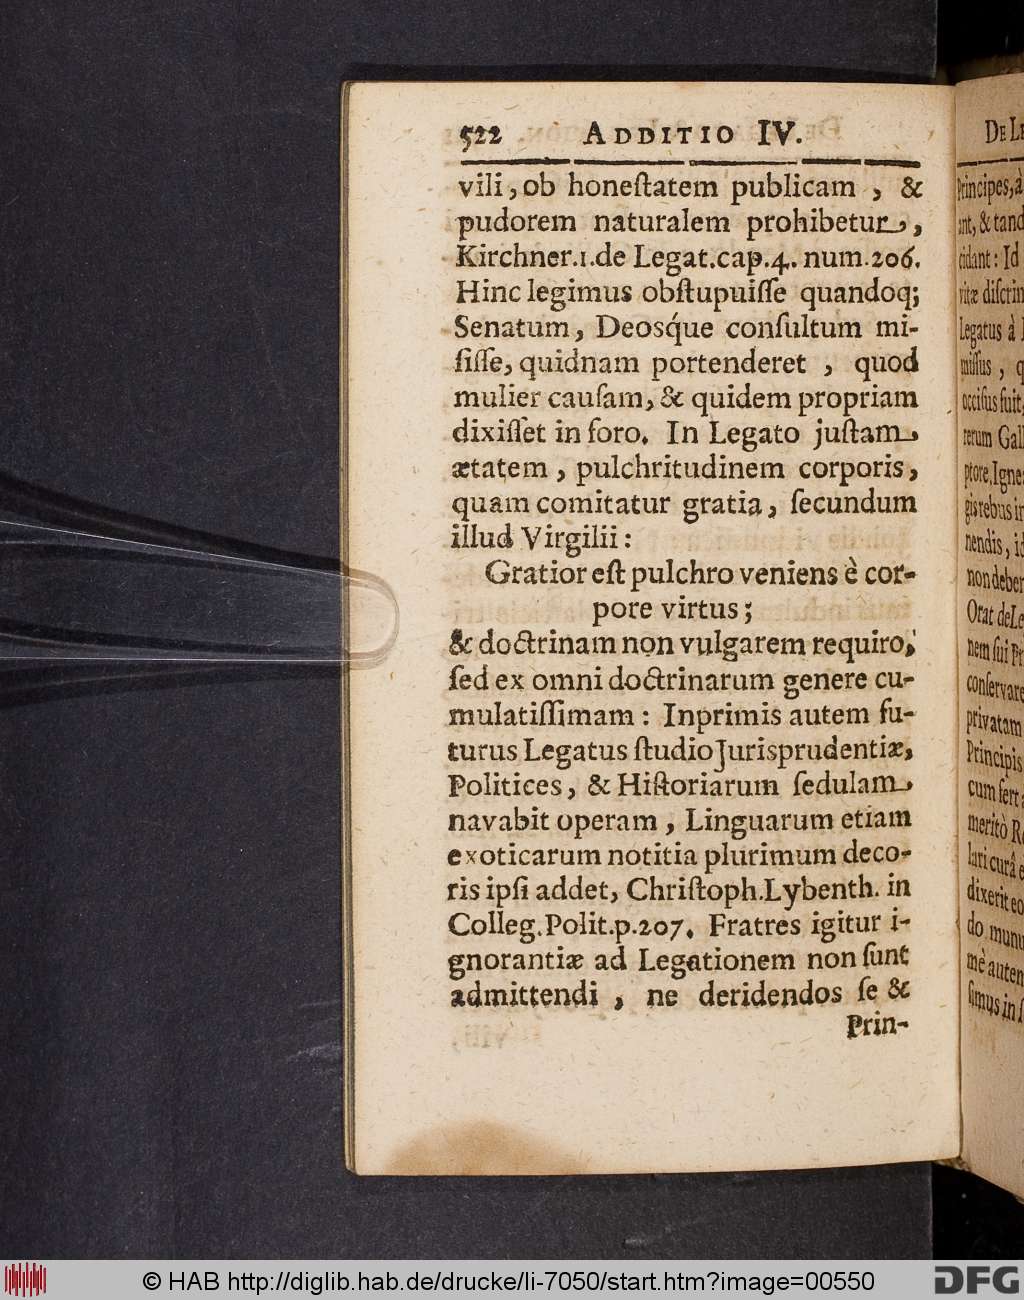 522 ADDITIO IV.
vili, ob honeſtatem publicam, &
pudorem naturalem prohibetur,
Kirchner.1.de Legat.cap.4. num.206.
Hinc legimus obſtupuiſſe quandoq;
Senatum, Deosq́ue conſultum mi-
ſiſſe, quidnam portenderet, quod
mulier cauſam, & quidem propriam
dixiſſet in foro. In Legato juſtam
ætatem, pulchritudinem corporis,
quam comitatur gratia, ſecundum
illud Virgilii:
Gratior eſt pulchro veniens è cor-
pore virtus;
& doctrinam non vulgarem requiro,
ſed ex omni doctrinarum genere cu-
mulatiſſimam: Inprimis autem fu-
turus Legatus ſtudio Jurisprudentiæ,
Politices, & Hiſtoriarum ſedulam
navabit operam, Linguarum etiam
exoticarum notitia plurimum deco-
ris ipſi addet, Chriſtoph.Lybenth. in
Colleg.Polit.p.207. Fratres igitur i-
gnorantiæ ad Legationem non ſunt
admittendi, ne deridendos ſe &
Prin-
DE LE
Principes, à
ant, & tand
cidant: Id
vitæ diſcrin
Legatus à
miſſus, q
occiſus fuit,
rerum Gall
ptore, Igne
gis rebus in
nendis, id
non deber
Orat de Le
nem ſui Pr
conſervare
privatam
Principis
cum fert
meritò Re
lari curâ e
dixerit eo
do munu
mè auten
ſimus in ſ
© HAB http://diglib.hab.de/drucke/li-7050/start.htm?image=00550
DFG